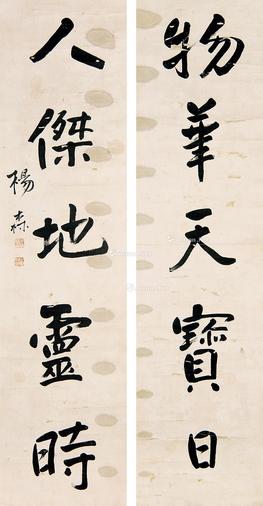 物華天寶日
人傑地靈時
楊森